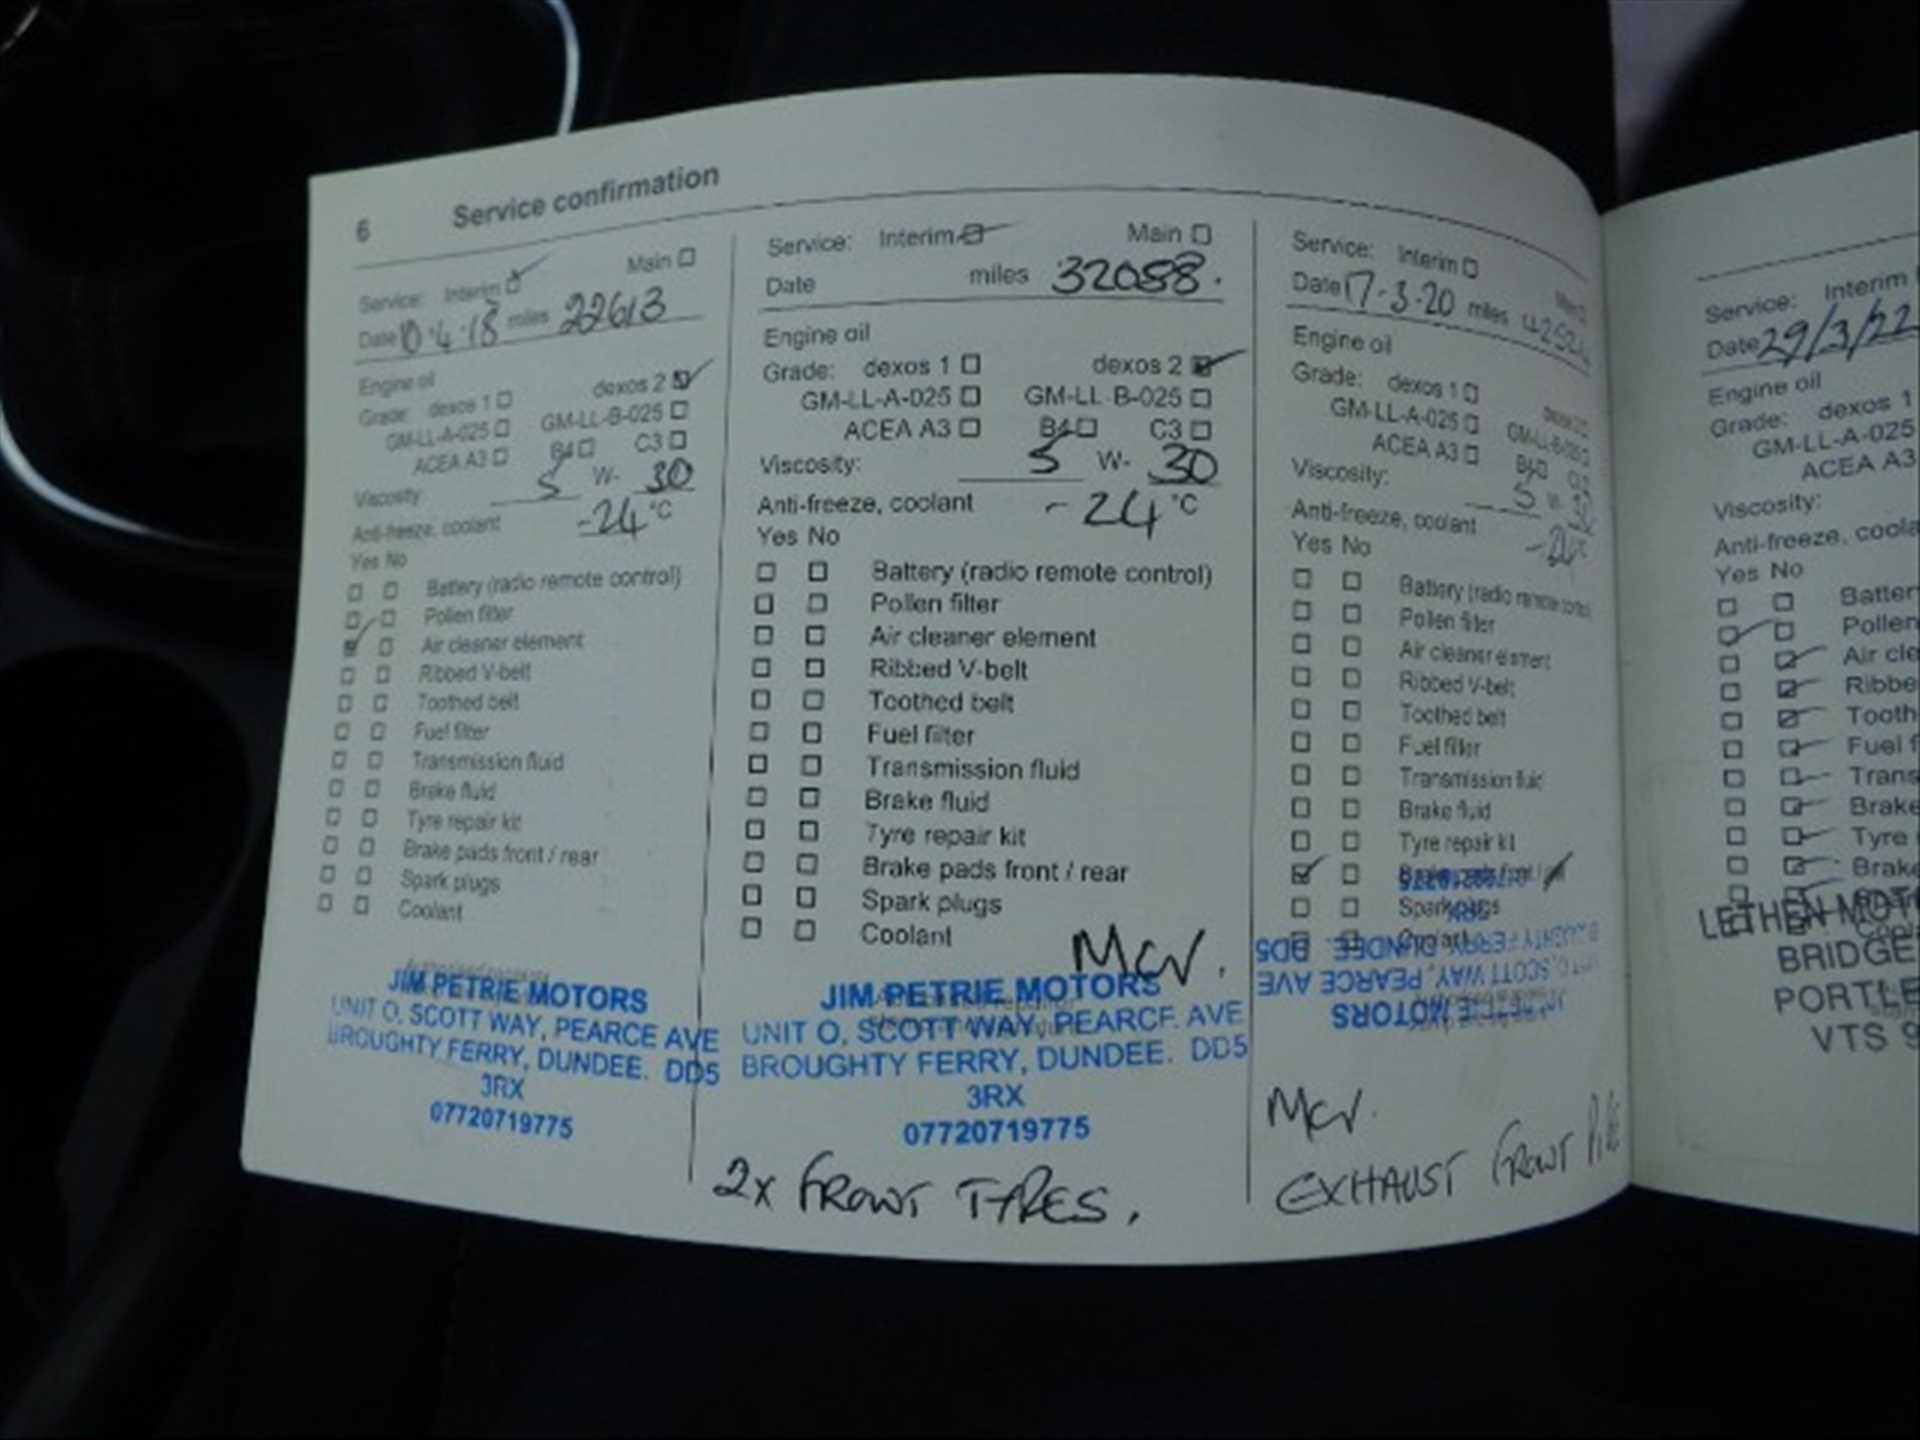 6 Service confirmation
Service: Interim Main
Date 10.4.18 miles 22613
Engine oil
Grade: dexos 1 dexos 2
GM-LL-A-025 GM-LL-B-025
ACEA A3 B4 C3
Viscosity 5 W- 30
Anti-freeze, coolant -24 °C
Yes No
Battery (radio remote control)
Pollen filter
Air cleaner element
Ribbed V-belt
Toothed belt
Fuel filter
Transmission fluid
Brake fluid
Tyre repair kit
Brake pads front / rear
Spark plugs
Coolant
JIM PETRIE MOTORS
UNIT O, SCOTT WAY, PEARCE AVE
BROUGHTY FERRY, DUNDEE. DD5
3RX
07720719775
Service: Interim Main
Date miles 32088.
Engine oil
Grade: dexos 1 dexos 2
GM-LL-A-025 GM-LL-B-025
ACEA A3 B4 C3
Viscosity: 5 W- 30
Anti-freeze, coolant -24 °C
Yes No
Battery (radio remote control)
Pollen filter
Air cleaner element
Ribbed V-belt
Toothed belt
Fuel filter
Transmission fluid
Brake fluid
Tyre repair kit
Brake pads front / rear
Spark plugs
Coolant
JIM PETRIE MOTORS
UNIT O, SCOTT WAY, PEARCE AVE
BROUGHTY FERRY, DUNDEE. DD5
3RX
07720719775
2x FRONT TYRES.
Service: Interim Main
Date 17-3-20 miles
Engine oil
Grade: dexos 1 dexos 2
GM-LL-A-025 GM-LL-B-025
ACEA A3 B4 C3
Viscosity: 5 W- 30
Anti-freeze, coolant
Yes No
Battery (radio remote control)
Pollen filter
Air cleaner element
Ribbed V-belt
Toothed belt
Fuel filter
Transmission fluid
Brake fluid
Tyre repair kit
Brake pads front /
Spark plugs
Coolant
BROUGHTY FERRY, DUNDEE. DD5
SCOTT WAY, PEARCE AVE
PETRIE MOTORS
EXHAUST FRONT PIPE
Service: Interim
Date 29/3/22
Engine oil
Grade: dexos 1
GM-LL-A-025
ACEA A3
Viscosity:
Anti-freeze, coola
Yes No
Batter
Pollen
Air cle
Ribbe
Tooth
Fuel f
Trans
Brake
Tyre
Brake
LETHEN MOT
BRIDGE
PORTLE
VTS 9